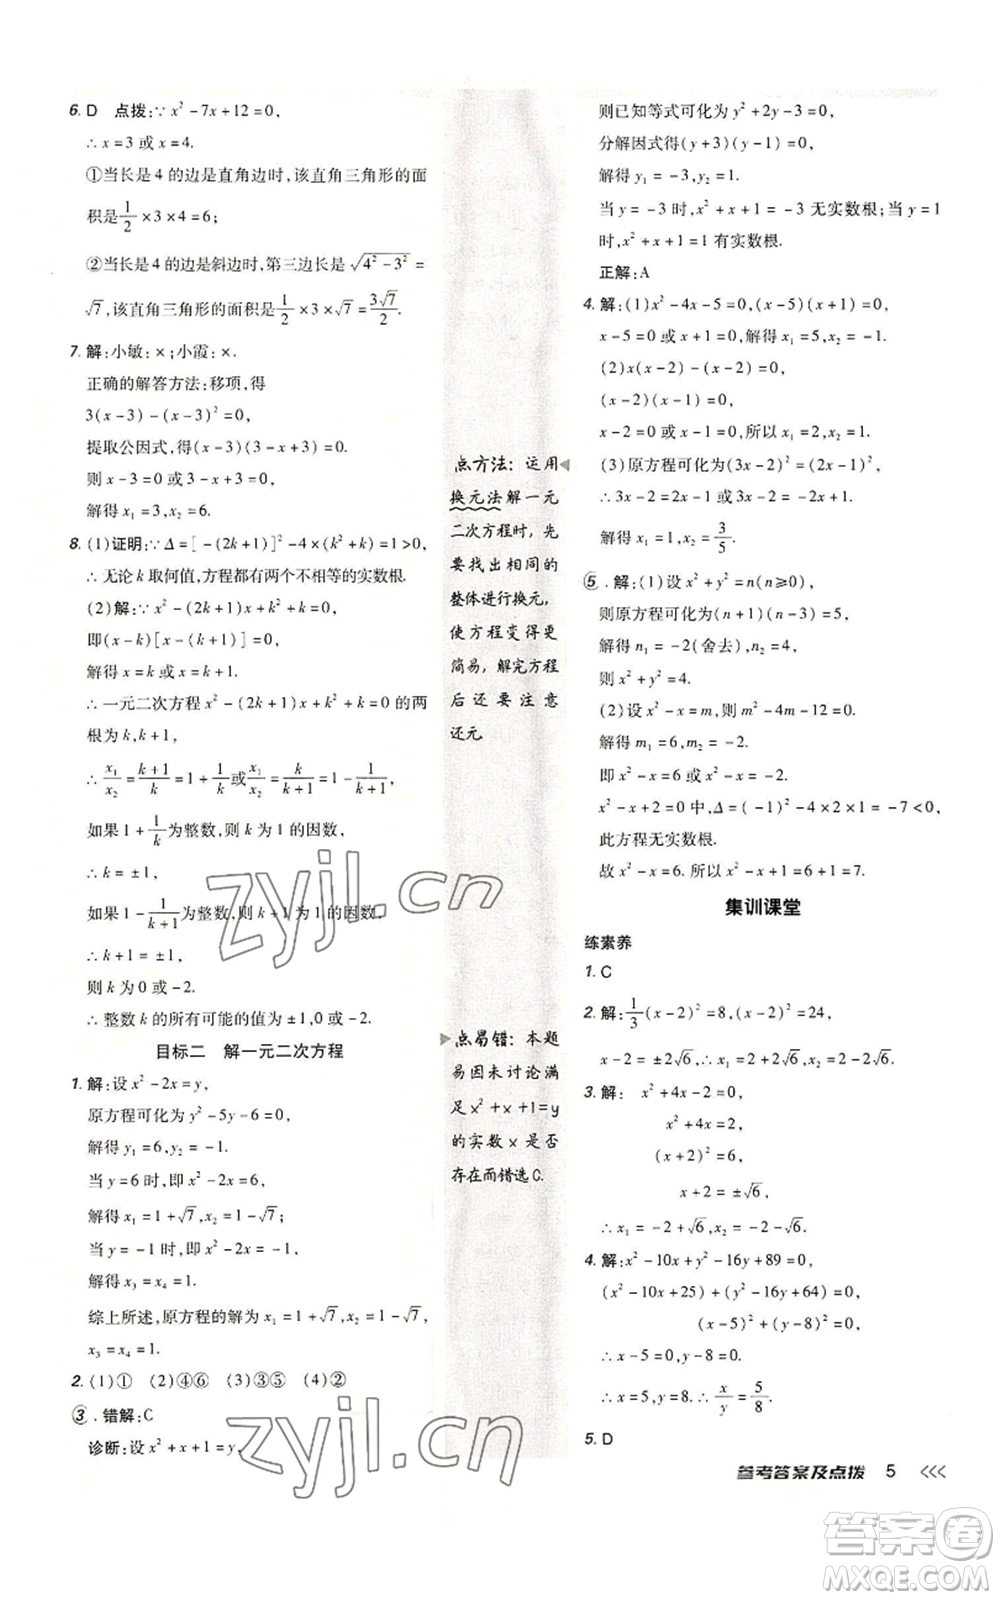 6. D 点拨:∵x²-7x+12=0,
∴x=3 或 x=4.
①当长是 4 的边是直角边时,该直角三角形的面
积是1/2×3×4=6;
②当长是 4 的边是斜边时,第三边长是 √(4²-3²)=
√7,该直角三角形的面积是1/2×3×√7=3√7/2.
7. 解:小敏:×;小霞:×.
正确的解答方法:移项,得
3(x-3)-(x-3)²=0,
提取公因式,得(x-3)(3-x+3)=0.
则 x-3=0 或 3-x+3=0,
解得 x₁=3,x₂=6.
8. (1)证明:∵Δ=[-(2k+1)]²-4×(k²+k)=1>0,
∴无论 k 取何值,方程都有两个不相等的实数根.
(2)解:∵x²-(2k+1)x+k²+k=0,
即(x-k)[x-(k+1)]=0,
解得 x=k 或 x=k+1.
∴一元二次方程 x²-(2k+1)x+k²+k=0 的两
根为 k,k+1,
∴x₁/x₂=(k+1)/k=1+1/k或x₁/x₂=k/(k+1)=1-1/(k+1).
如果 1+1/k为整数,则 k 为 1 的因数,
∴k=±1,
如果 1-1/(k+1)为整数,则 k+1 为 1 的因数,
∴k+1=±1,
则 k 为 0 或-2.
∴整数 k 的所有可能的值为±1,0 或-2.
目标二 解一元二次方程
1. 解:设 x²-2x=y,
原方程可化为 y²-5y-6=0,
解得 y₁=6,y₂=-1.
当 y=6 时,即 x²-2x=6,
解得 x₁=1+√7,x₂=1-√7;
当 y=-1 时,即 x²-2x=-1,
解得 x₃=x₄=1.
综上所述,原方程的解为 x₁=1+√7,x₂=1-√7,
x₃=x₄=1.
2. (1)① (2)④⑥ (3)③⑤ (4)②
③. 错解:C
诊断:设 x²+x+1=y,
点方法:运用
换元法解一元
二次方程时,先
要找出相同的
整体进行换元,
使方程变得更
简易,解完方程
后还要注意
还元.
点易错:本题
易因未讨论满
足 x²+x+1=y
的实数 x 是否
存在而错选C.
则已知等式可化为 y²+2y-3=0,
分解因式得(y+3)(y-1)=0,
解得 y₁=-3,y₂=1.
当 y=-3 时,x²+x+1=-3 无实数根;当 y=1
时,x²+x+1=1 有实数根.
正解:A
4. 解:(1)x²-4x-5=0,(x-5)(x+1)=0,
x-5=0 或 x+1=0,解得 x₁=5,x₂=-1.
(2)x(x-2)-(x-2)=0,
(x-2)(x-1)=0,
x-2=0 或 x-1=0,所以 x₁=2,x₂=1.
(3)原方程可化为(3x-2)²=(3-2x)²,
∴3x-2=3-2x 或 3x-2=-3+2x,
解得 x₁=1,x₂=3/5.
⑤. 解:(1)设 x²+y²=n(n≥0),
则原方程可化为(n+1)(n-3)=5,
解得 n₁=-2(舍去),n₂=4.
则 x²+y²=4.
(2)设 x²-x=m,则 m²-4m-12=0,
解得 m₁=6,m₂=-2.
即 x²-x=6 或 x²-x=-2.
x²-x+2=0 中,Δ=(-1)²-4×2×1=-7<0,
此方程无实数根.
故 x²-x=6. 所以 x²-x+1=6+1=7.
集训课堂
练素养
1. C
2. 解:1/3(x-2)²=8,(x-2)²=24,
x-2=±2√6,∴x₁=2+2√6,x₂=2-2√6.
3. 解: x²+4x-2=0,
x²+4x=2,
(x+2)²=6,
x+2=±√6,
∴x₁=-2+√6,x₂=-2-√6.
4. 解:x²-10x+y²-16y+89=0,
(x²-10x+25)+(y²-16y+64)=0,
(x-5)²+(y-8)²=0,
∴x-5=0,y-8=0.
∴x=5,y=8.∴x/y=5/8.
5. D
参考答案及点拨 5 <<<
zyjl.cn
zyjl.cn
答案圈
MXQE.COM